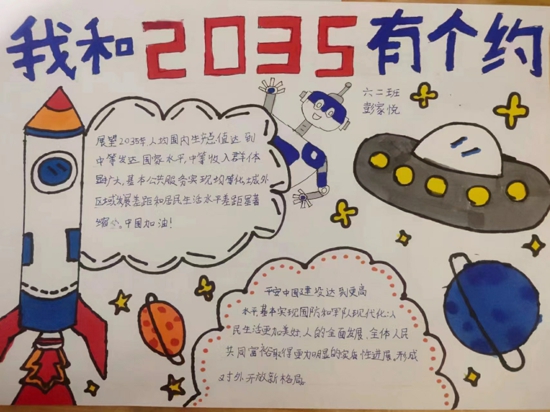 我和2035有个约
六二班
彭家悦
展望2035年人均国内生产总值达到
中等发达国家水平,中等收入群体
显扩大,基本公共服务实现均等化,城乡
区域发展差距和居民生活水平差距显著
缩小。中国加油!
平安中国建设达到更高
水平基本实现国防和军队现代化:人
民生活更加美好,人的全面发展、全体人民
共同富裕取得更为明显的实质性进展,形成
对外开放新格局